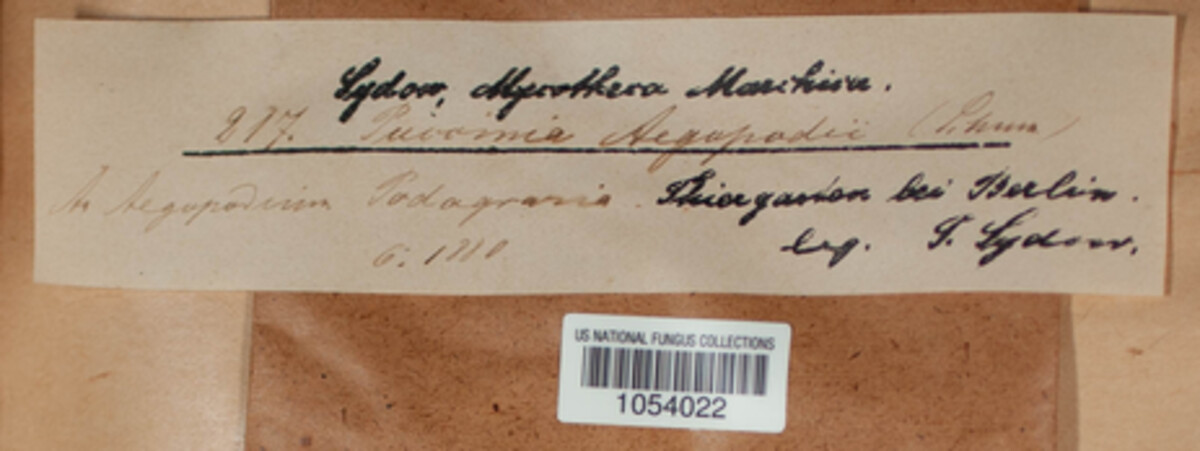 Sydow, Mycotheca Marchica.
217. Puccinia Aegopodii (Schum)
Aegopodium Podagraria. Thiergarten bei Berlin.
6. 1880 leg. P. Sydow.
US NATIONAL FUNGUS COLLECTIONS
1054022